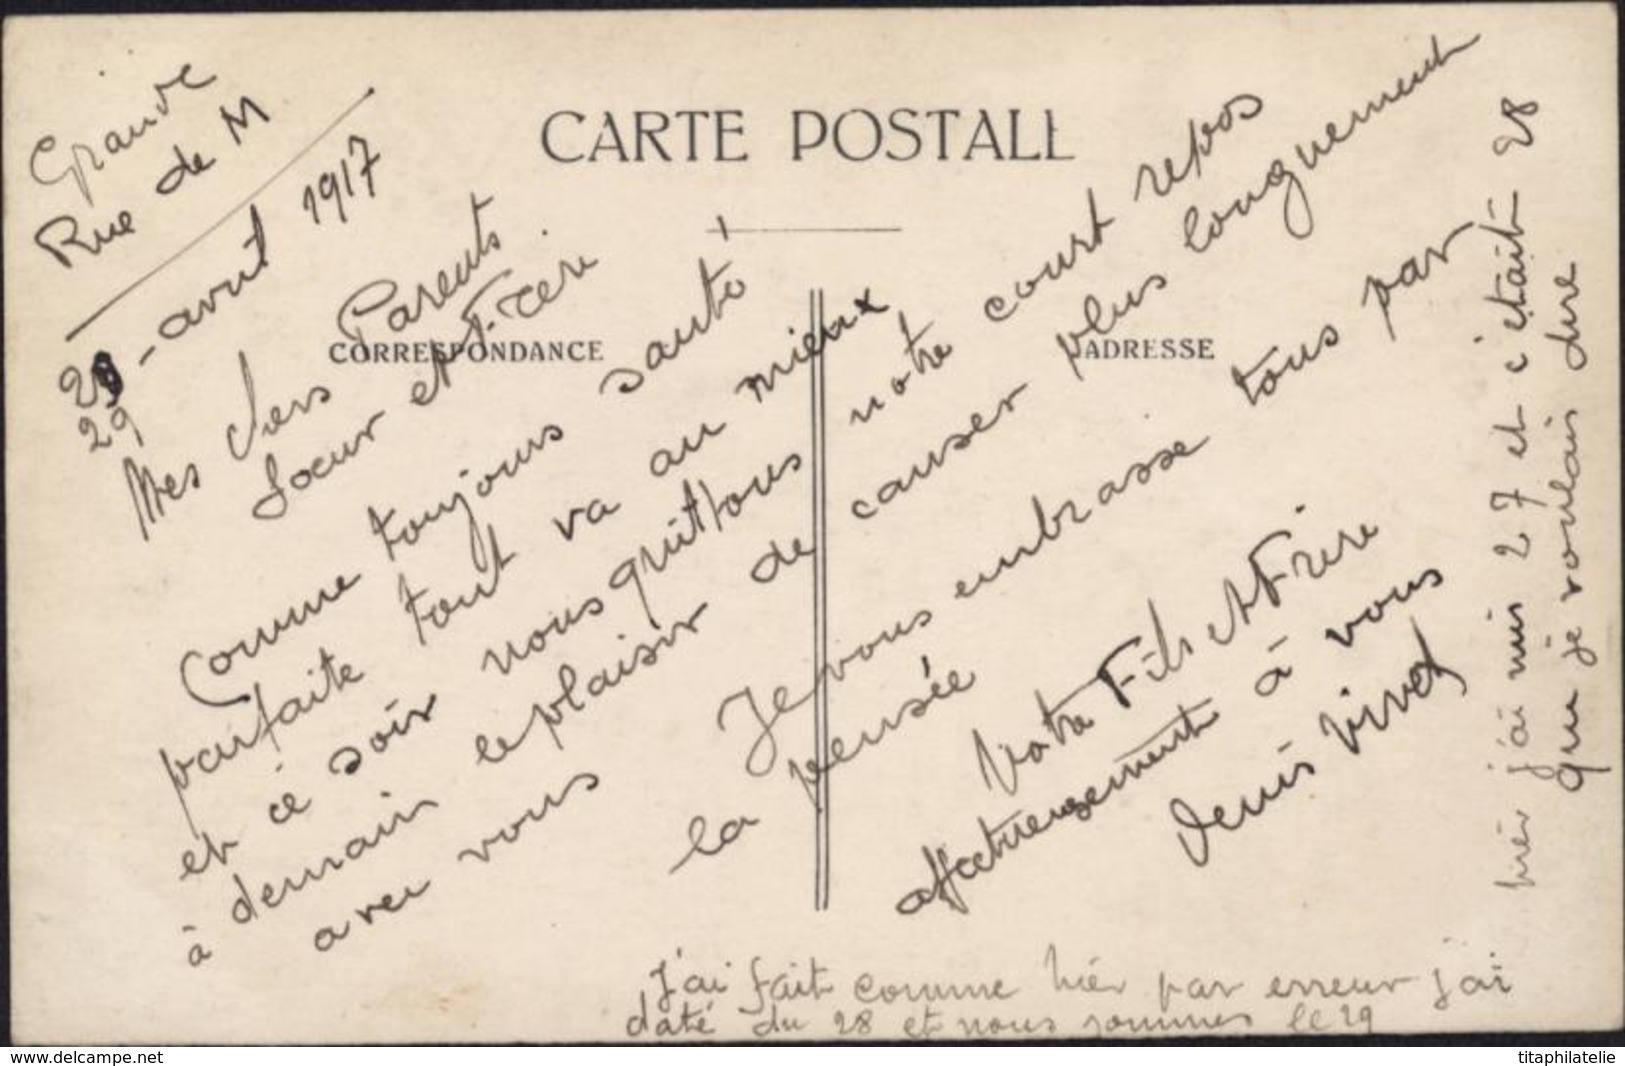 CARTE POSTALE
CORRESPONDANCE
ADRESSE
Grande
Rue de M
28 - avril 1917
29
Mes chers Parents
Sœur et Frère.
Comme toujours santé
parfaite tout va au mieux
et ce soir nous quittons notre court repos
à demain le plaisir de causer plus longuement
avec vous Je vous embrasse tous par
la pensée
Votre Fils et Frère
affectueusement à vous
Denis
J'ai fait comme hier par erreur j'ai
daté du 28 et nous sommes le 29
hier j'ai mis 27 et c'était 28
que je voulais dire
delcampe.net
titaphilatelie